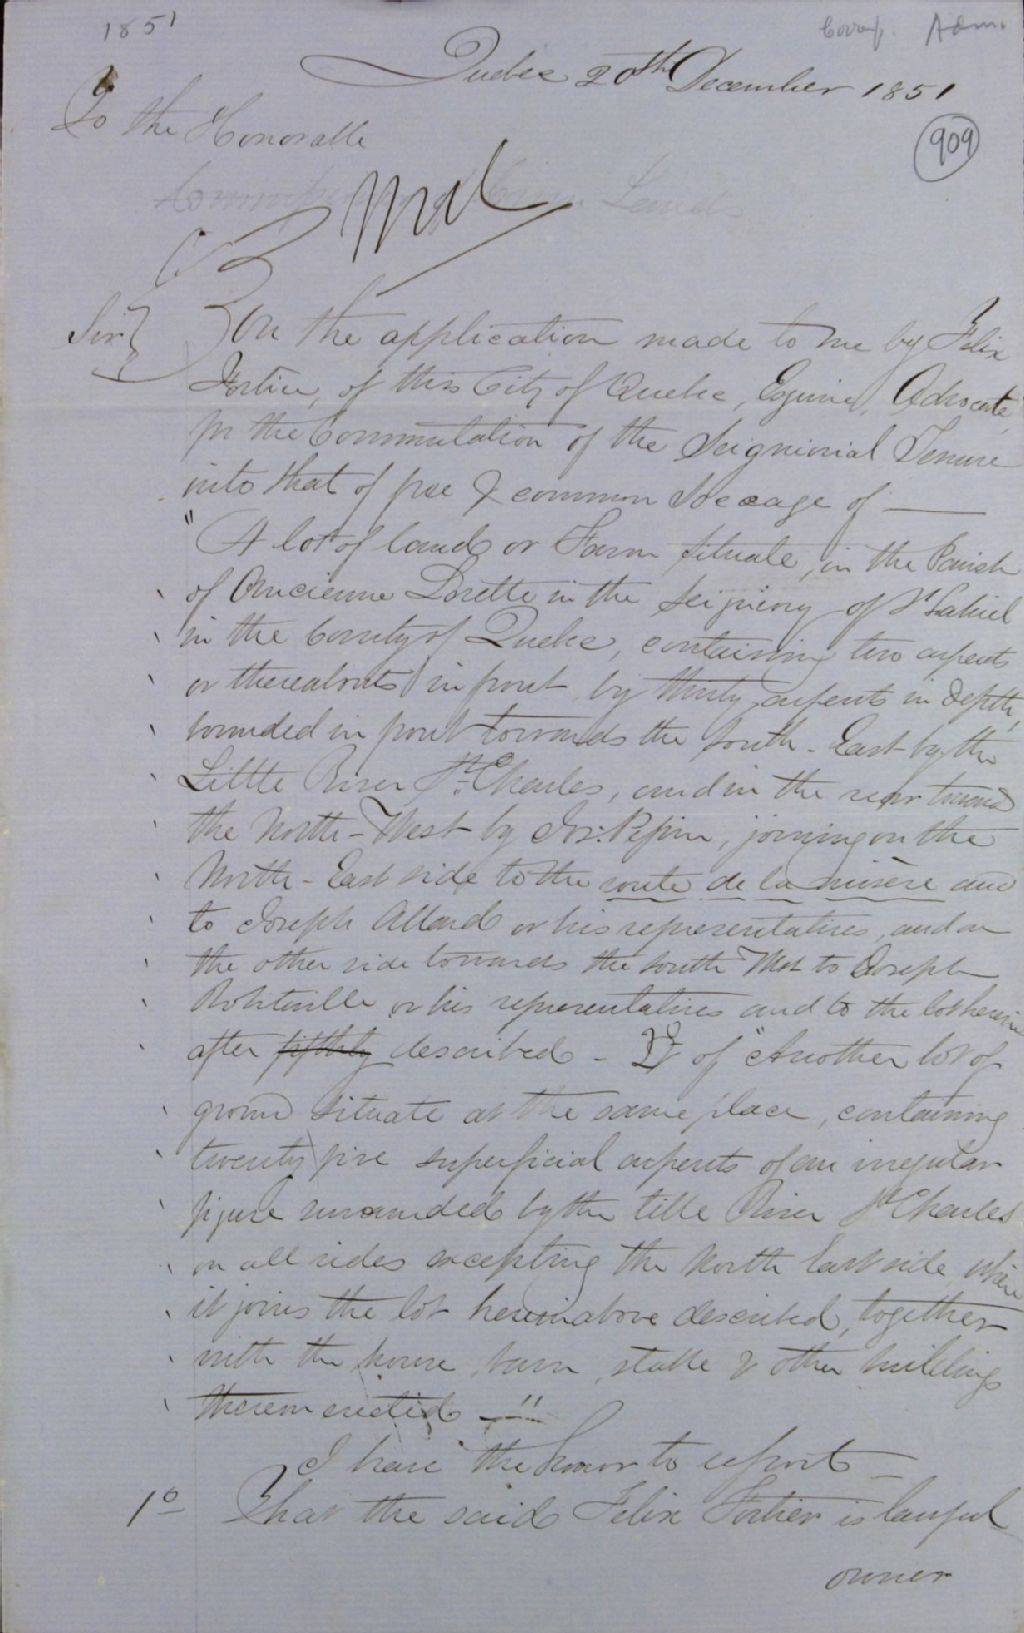 1851
Corresp. Adm.
Quebec 20th December 1851
To the Honorable
909
Lands
Sir
On the application made to me by Felix
Fortier, of this City of Quebec, Esquire, Advocate,
for the Commutation of the Seigniorial Tenure
into that of free & common Soccage of —
"A lot of land or Farm situate, in the Parish
of Ancienne Lorette in the Seigniory of St Gabriel
in the County of Quebec, containing two arpents
or thereabouts in front by thirty arpents in depth,
bounded in front towards the South-East by the
Little River St. Charles, and in the rear towards
the North-West by Jos: Pepin, joining on the
North-East side to the route de la misère and
to Joseph Allard or his representatives, and on
the other side towards the South West to Joseph
or his representatives and to the lot herein
after fifthly described - & of "Another lot of
ground situate at the same place, containing
twenty five superficial arpents of an irregular
figure surrounded by the little River St Charles
on all sides excepting the North East side where
it joins the lot hereinabove described, together
with the house, barn, stable & other buildings
thereon erected —"
I have the honor to report —
1o That the said Felix Fortier is lawful
owner